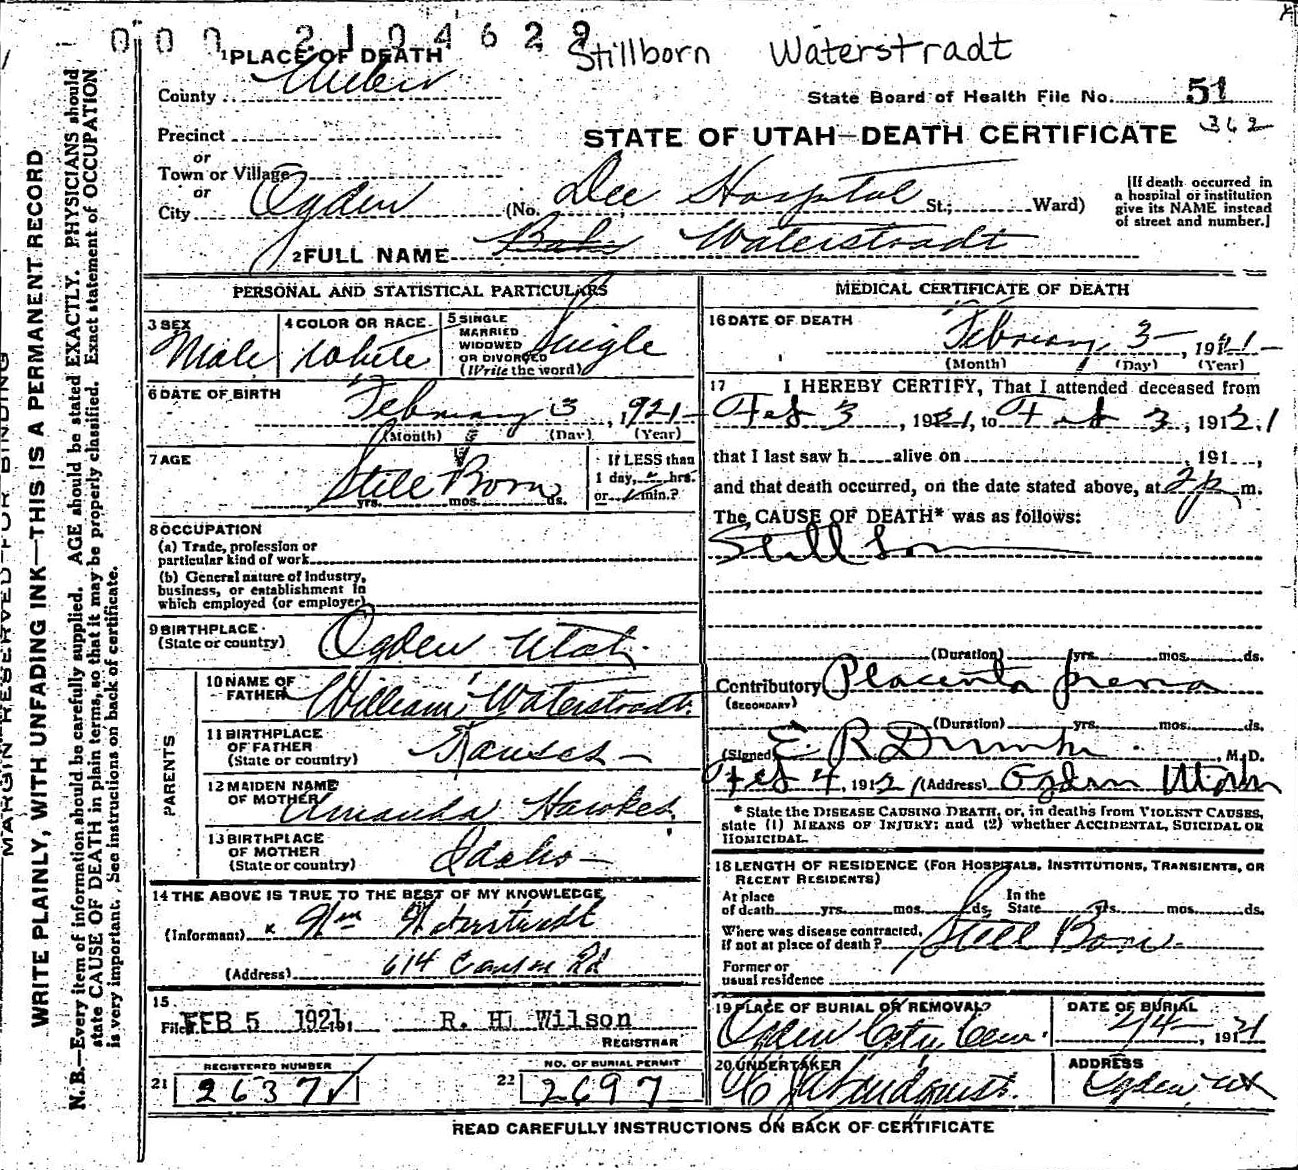 0 0 0 2 1 0 4 6 2 9
Stillborn Waterstradt
1 PLACE OF DEATH
County Weber
State Board of Health File No. 51
362
Precinct
STATE OF UTAH—DEATH CERTIFICATE
or
Town or Village
or
City Ogden (No. Dee Hospital St.; Ward)
[If death occurred in
a hospital or institution
give its NAME instead
of street and number.]
2 FULL NAME Baby Waterstradt
PERSONAL AND STATISTICAL PARTICULARS
3 SEX
Male
4 COLOR OR RACE
White
5 SINGLE
MARRIED
WIDOWED
OR DIVORCED
(Write the word)
Single
6 DATE OF BIRTH
February 3, 1921
(Month) (Day) (Year)
7 AGE
Still Born
yrs. mos. ds.
If LESS than
1 day, hrs.
or min.?
8 OCCUPATION
(a) Trade, profession or
particular kind of work
(b) General nature of industry,
business, or establishment in
which employed (or employer)
9 BIRTHPLACE
(State or country)
Ogden Utah.
PARENTS
10 NAME OF
FATHER
William Waterstradt.
11 BIRTHPLACE
OF FATHER
(State or country)
Kansas
12 MAIDEN NAME
OF MOTHER
Amanda Hawkes
13 BIRTHPLACE
OF MOTHER
(State or country)
Idaho
14 THE ABOVE IS TRUE TO THE BEST OF MY KNOWLEDGE
(Informant) x Wm Waterstradt
(Address) 614 Canyon Rd
15
Filed FEB 5 1921, R. H. Wilson
REGISTRAR
REGISTERED NUMBER
21 2637
NO. OF BURIAL PERMIT
22 2697
MEDICAL CERTIFICATE OF DEATH
16 DATE OF DEATH
February 3, 1921
(Month) (Day) (Year)
17 I HEREBY CERTIFY, That I attended deceased from
Feb 3, 1921, to Feb 3, 1921
that I last saw h alive on , 191 ,
and that death occurred, on the date stated above, at 2 p m.
The CAUSE OF DEATH* was as follows:
Still born
(Duration) yrs. mos. ds.
Contributory Placenta previa
(SECONDARY)
(Duration) yrs. mos. ds.
(Signed) E. R. M.D.
Feb 4, 1921 (Address) Ogden Utah
* State the DISEASE CAUSING DEATH, or, in deaths from VIOLENT CAUSES,
state (1) MEANS OF INJURY; and (2) whether ACCIDENTAL, SUICIDAL OR
HOMICIDAL.
18 LENGTH OF RESIDENCE (FOR HOSPITALS, INSTITUTIONS, TRANSIENTS, OR
RECENT RESIDENTS)
At place
of death yrs. mos. ds.
In the
State yrs. mos. ds.
Where was disease contracted,
if not at place of death? Still Born
Former or
usual residence
19 PLACE OF BURIAL OR REMOVAL?
Ogden City Cem.
DATE OF BURIAL
2/4, 1921
20 UNDERTAKER
Lindquist.
ADDRESS
Ogden Ut
READ CAREFULLY INSTRUCTIONS ON BACK OF CERTIFICATE
MARGIN RESERVED FOR BINDING
WRITE PLAINLY, WITH UNFADING INK—THIS IS A PERMANENT RECORD
N. B.—Every item of information should be carefully supplied. AGE should be stated EXACTLY. PHYSICIANS should
state CAUSE OF DEATH in plain terms, so that it may be properly classified. Exact statement of OCCUPATION
is very important. See instructions on back of certificate.